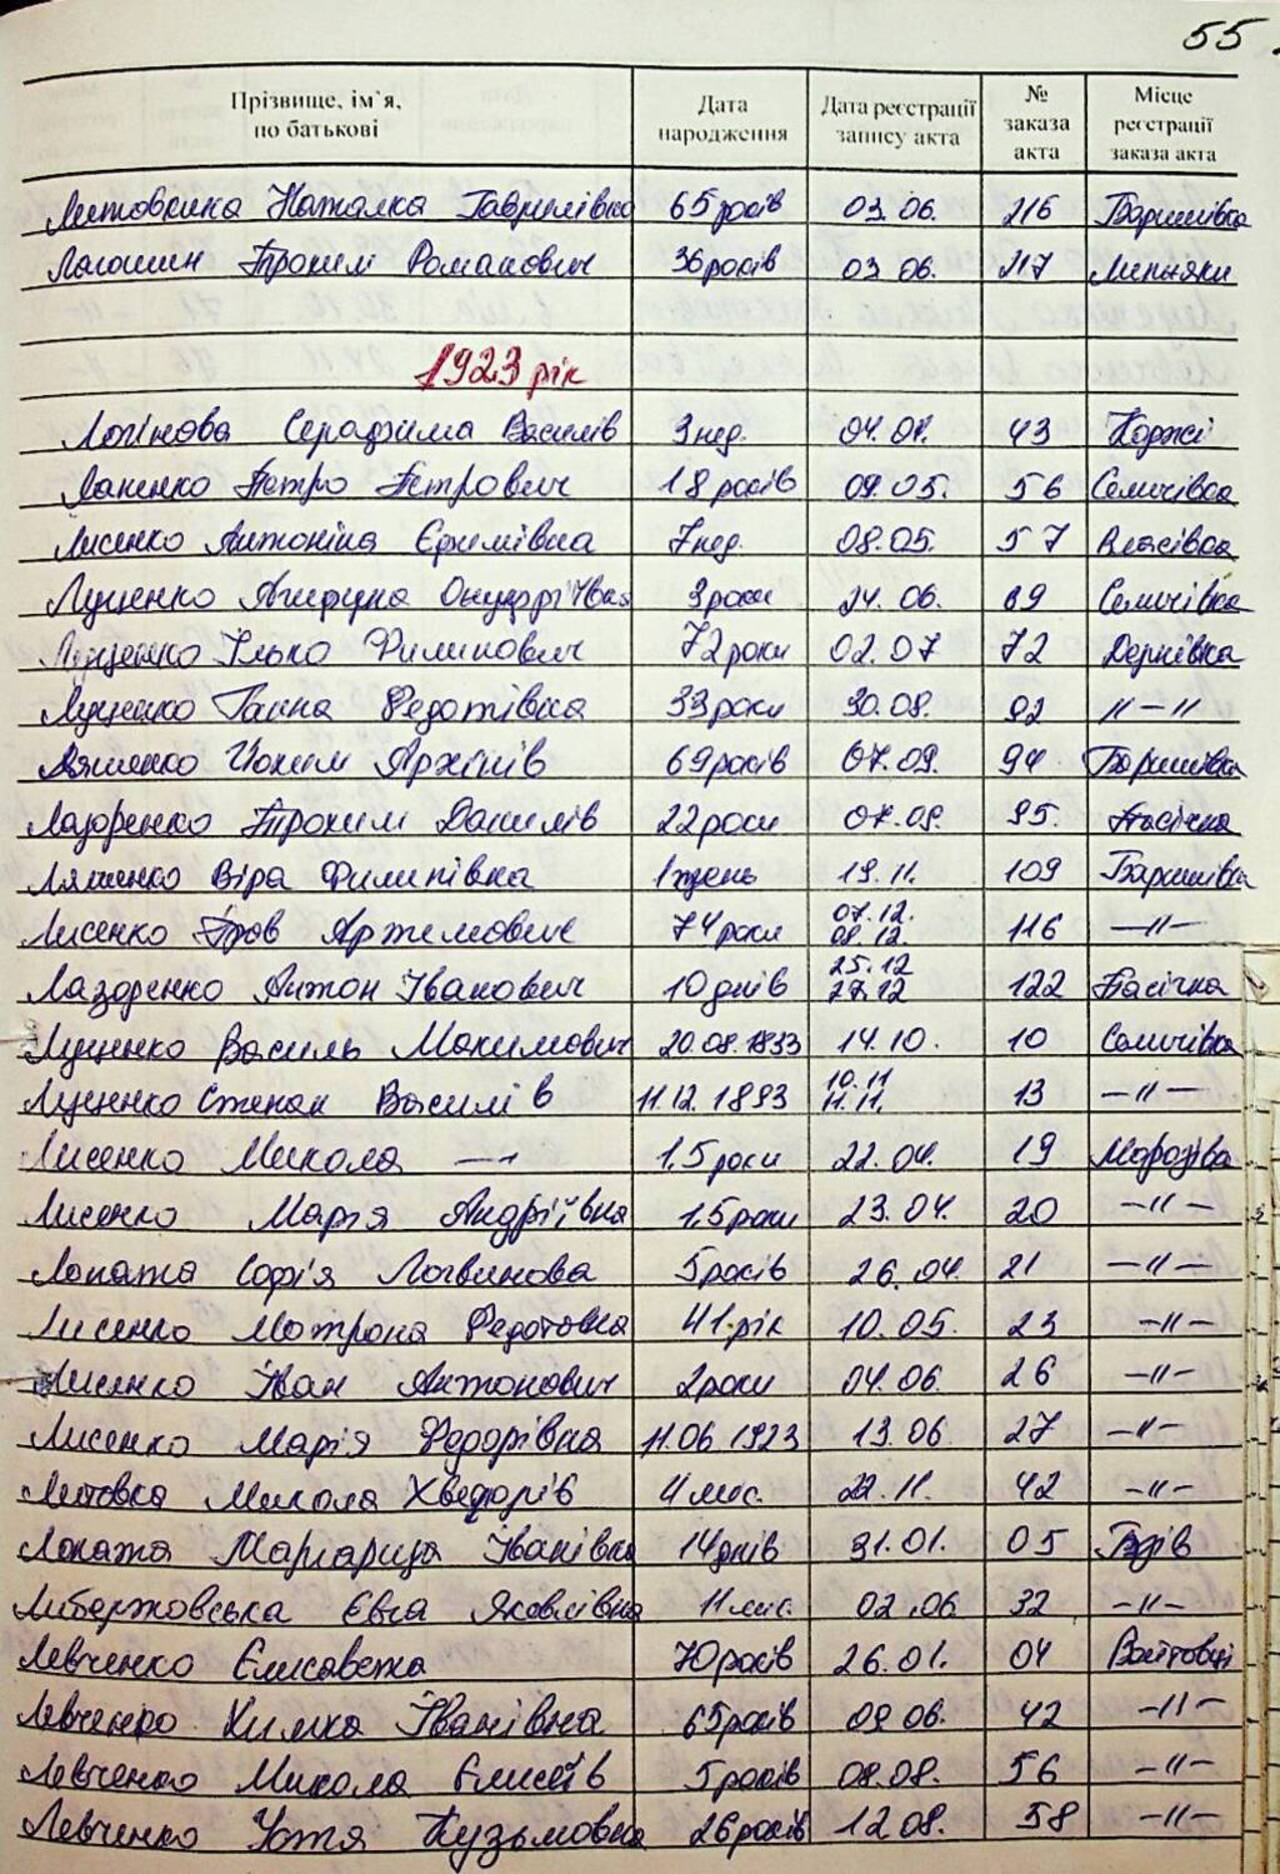 55.
Прізвище, ім`я, по батькові Дата народження Дата реєстрації запису акта № заказа акта Місце реєстрації заказа акта
Литовсика Наталка Гаврилівна 65 років 03.06. 216 Баришівка
Логошин Трохим Романович 36 років 03 06. 217 Липняки
1923 рік
Логінова Серафима Василів 3 нед. 04.01. 43 Коржі
Лапенко Петро Петрович 18 років 09.05. 56 Селичівка
Лисенко Антоніна Єфимівна 7 нед. 08.05. 57 Власівка
Луценко Агифуна Онуфріївна 3 роки 24.06. 69 Селичівка
Луценко Ілько Филипович 72 роки 02.07 72 Дернівка
Луценко Ганна Федотівна 33 роки 30.08. 92 //-//
Ляшенко Йоким Архипів 69 років 07.09. 94 Баришівка
Лазоренко Трохим Данилів 22 роки 07.09. 95. Пасічна
Ляшенко Віра Филипівна 1 тжень 19.11. 109 Баришівка
Лисенко Пров Артемович 74 роки 07.12. 08.12. 116 -//-
Лазоренко Антон Іванович 10 днів 25.12 27.12 122 Пасічна
Луценко Василь Макимович 20.08.1833 14.10. 10 Селичівка
Луценко Степан Василів 11.12.1893 10.11 11.11. 13 -//-
Лисенко Микола — 1,5 роки 22.04. 19 Морозівка
Лисенко Марія Андріївна 1,5 роки 23.04. 20 -//-
Лопата Софія Логвинова 5 років 26.04. 21 -//-
Лисенко Мотрона Федотовна 41 рік 10.05. 23 -//-
Лисенко Іван Антонович 2 роки 04.06. 26 -//-
Лисенко Марія Федорівна 11.06.1923 13.06 27 -//-
Литовка Микола Хведорів 4 міс. 22.11. 42 -//-
Лопата Маргарита Іванівна 14 днів 31.01. 05 Бзів
Либержовська Євга Яковлівна 11 міс. 02.06 32 -//-
Левченко Єлисавета 70 років 26.01. 04 Войтовці
Левченко Химка Іванівна 65 років 09.06. 42 -//-
Левченко Микола Єлисеїв 5 років 08.08. 56 -//-
Левченко Устя Кузьмовна 26 років 12 08. 58 -//-